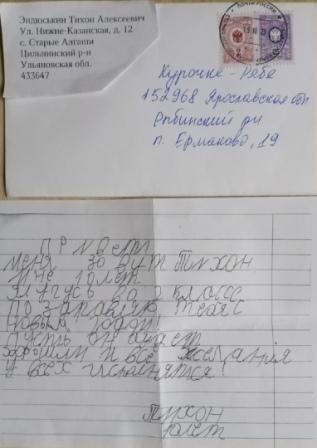 Эндюськин Тихон Алексеевич
Ул. Нижне-Казанская, д. 12
с. Старые Алгаши
Цильнинский р-н
Ульяновская обл.
433647
Курочке - Рябе
152968 Ярославская обл
Рыбинский р-н
п. Ермаково, 19
ПРИВЕТ
меня зовут Тихон
мне лет
учусь во 2 классе
поздравляю тебя с
новым годом
Пусть он будет
хорошим и все желания
у всех исполнятся!
Тихон
лет